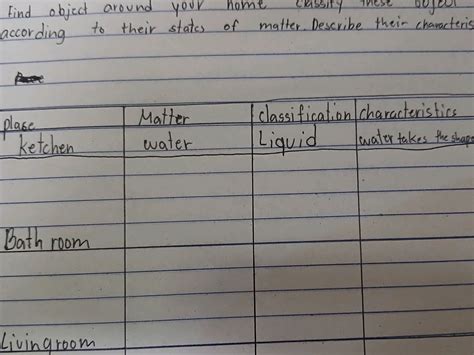 Find object around your home classify these object
according to their states of matter. Describe their characteris
plase Matter classification characteristics
ketchen water Liquid water takes the shape
Bath room
Livingroom